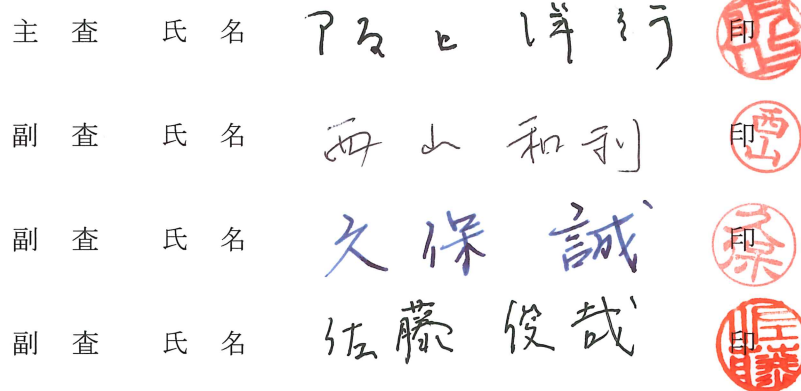 主 査 氏 名 阪口 洋行 印
副 査 氏 名 西山 和利 印 西山
副 査 氏 名 久保 誠 印 久保
副 査 氏 名 佐藤 俊哉 印 佐藤